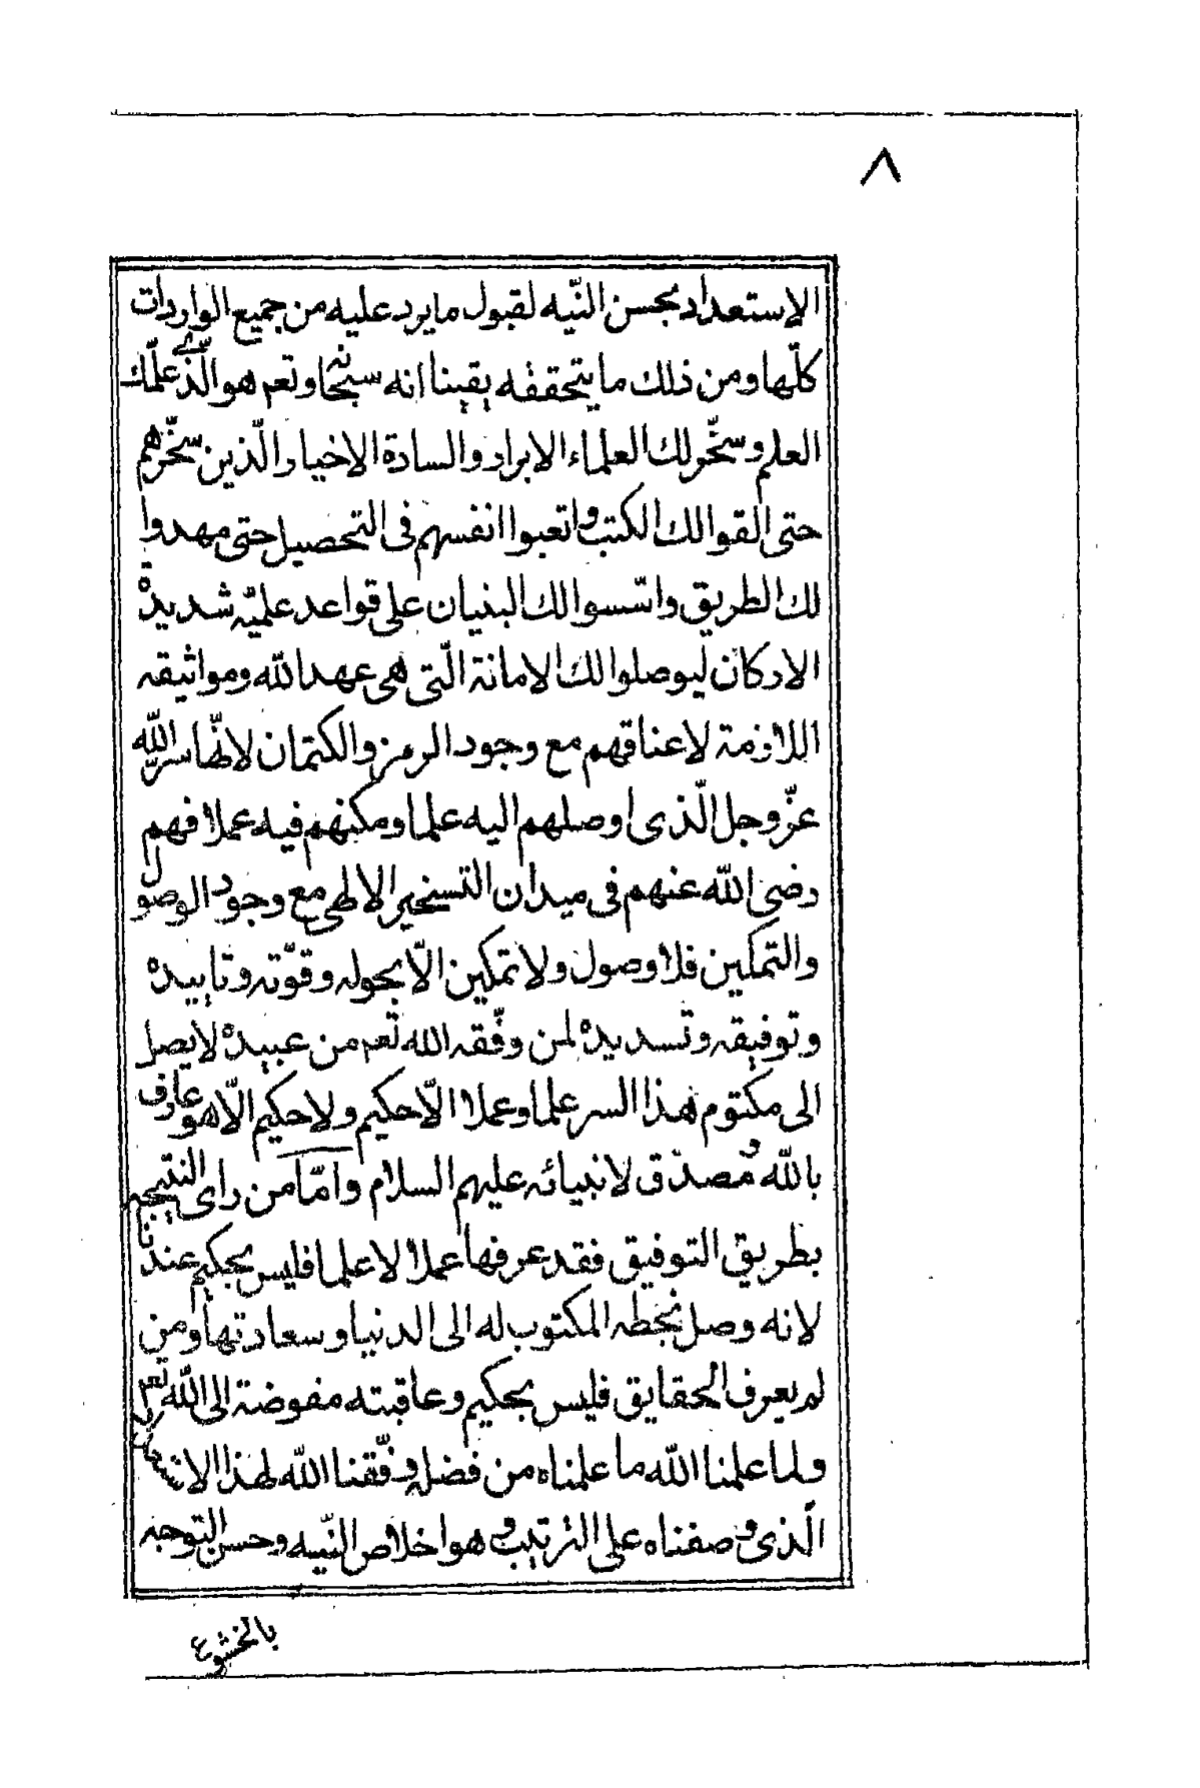 ٨
الإستعداد بحسن النّيه لقبول ما يرد عليه من جميع الواردات
كلّها ومن ذلك ما يتحققه يقينا انه سبحانه وتعم هو الّذى علّمك
العلم وسخّر لك العلماء الابرار والسادة الاخيار الّذين سخّرهم
حتى القوا لك الكتب واتعبوا انفسهم فى التحصيل حتى مهدوا
لك الطريق واسّسوا لك البنيان على قواعد علميّه شديدة
الاركان ليوصلوا لك الامانة الّتى هى عهد الله ومواثيقه
اللازمة لاعناقهم مع وجود الرمز والكتمان لانّها سر اللّه
عزّ وجل الّذى اوصلهم اليه علما ومكنهم فيه عملا فهم
رضى اللّه عنهم فى ميدان التسخير الالهى مع وجود الوصول
والتمكين فلا وصول ولا تمكين الّا بحوله وقوّته وتاييده
وتوفيقه وتسديده لمن وفّقه الله تعم من عبيده لا يصل
الى مكتوم هذا السر علما وعملا الّا حكيم ولا حكيم الّا هو عارف
باللّه ومصدّق لانبيائه عليهم السلام وامّا من راى النتيجه
بطريق التوفيق فقد عرفها عملا لا علما فليس بحكيم عندنا
لانه وصل بخطه المكتوب له الى الدنيا وسعادتها ومن
لم يعرف الحقايق فليس بحكيم وعاقبته مفوضة الى اللّه تعم
ولما علمنا اللّه ما علمناه من فضله وفّقنا اللّه لهذا الانسحاب
الّذى وصفناه على الترتيب وهو اخلاص النّيه وحسن التوجه
بالخشوع